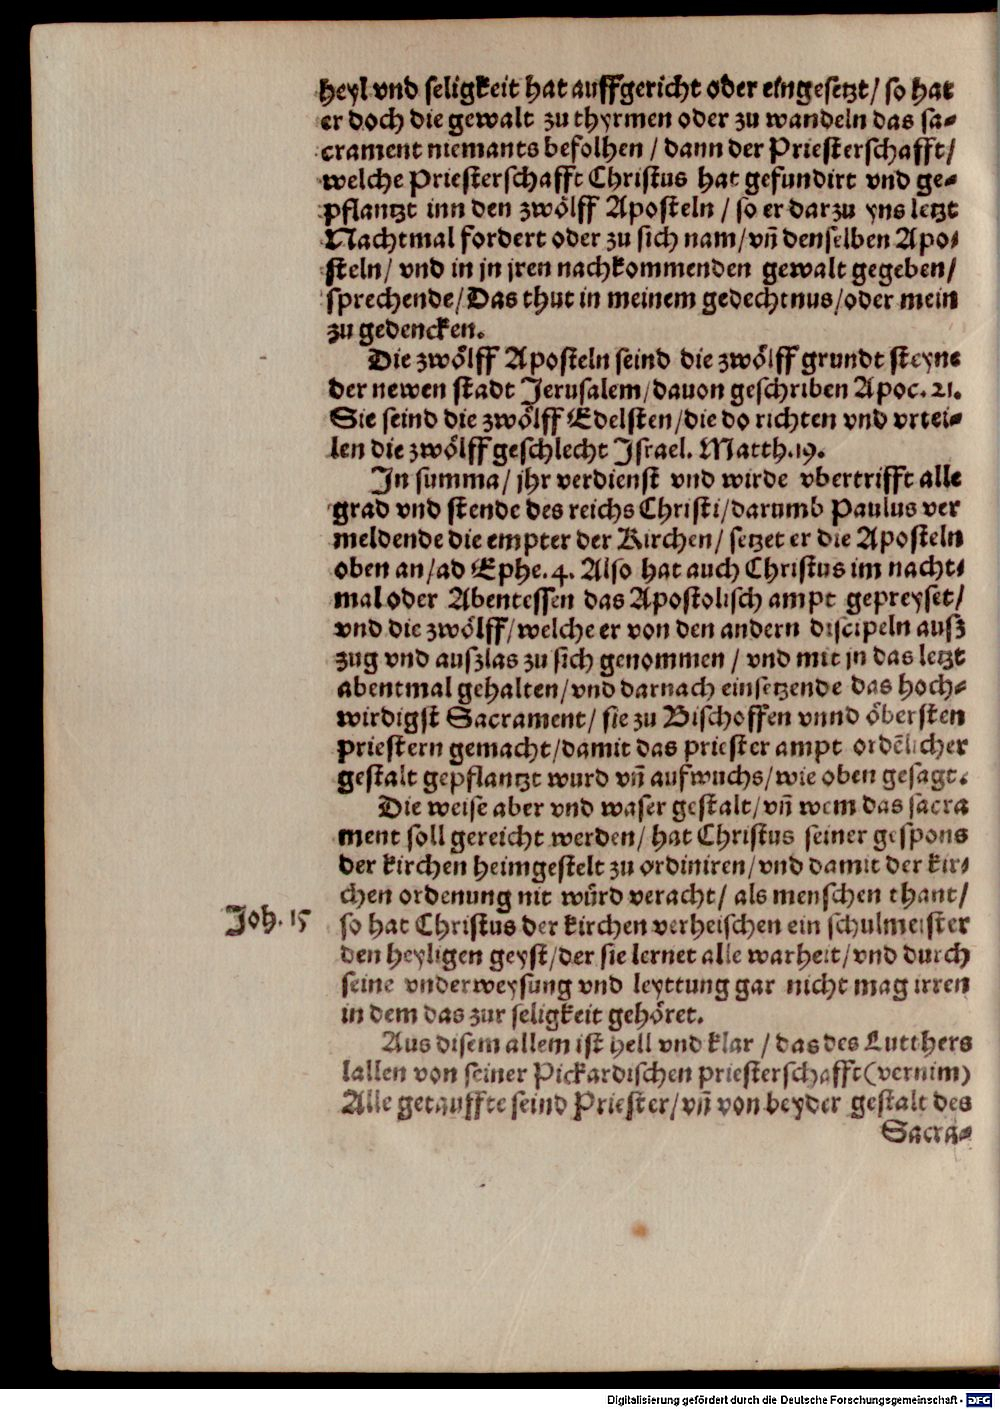 heyl vnd seligkeit hat auffgericht oder eingesetzt/ so hat
er doch die gewalt zu thyrmen oder zu wandeln das sa⸗
crament niemants befolhen / dann der Priesterschafft/
welche Priesterschafft Christus hat gefundirt vnd ge⸗
pflantzt inn den zwölff Aposteln / so er darzu yns letzt
Nachtmal fordert oder zu sich nam/ vn̄ denselben Apo⸗
steln/ vnd in jn jren nachkommenden gewalt gegeben/
sprechende/ Das thut in meinem gedechtnus/ oder mein
zu gedencken.
Die zwölff Aposteln seind die zwölff grundt steyne
der newen stadt Jerusalem/ dauon geschriben Apoc. 21.
Sie seind die zwölff Edelsten/ die do richten vnd vrtei⸗
len die zwölff geschlecht Israel. Matth. 19.
In summa/ jhr verdienst vnd wirde vbertrifft alle
grad vnd stende des reichs Christi/ darumb Paulus ver
meldende die empter der Kirchen/ setzet er die Aposteln
oben an/ ad Ephe. 4. Also hat auch Christus im nacht⸗
mal oder Abentessen das Apostolisch ampt gepreyset/
vnd die zwölff/ welche er von den andern discipeln ausz
zug vnd auszlas zu sich genommen / vnd mit jn das letzt
abentmal gehalten/ vnd darnach einsetzende das hoch⸗
wirdigst Sacrament/ sie zu Bischoffen vnnd öbersten
priestern gemacht/ damit das priester ampt ordēlicher
gestalt gepflantzt wurd vn̄ aufwuchs/ wie oben gesagt.
Die weise aber vnd waser gestalt/ vn̄ wem das sacra
ment soll gereicht werden/ hat Christus seiner gespons
der kirchen heimgestelt zu ordiniren/ vnd damit der kir⸗
chen ordenung nit würd veracht/ als menschen thant/
Joh. 15 so hat Christus der kirchen verheischen ein schulmeister
den heyligen geyst/ der sie lernet alle warheit/ vnd durch
seine vnderweysung vnd leyttung gar nicht mag irren
in dem das zur seligkeit gehöret.
Aus disem allem ist hell vnd klar / das des Lutthers
lallen von seiner Pickardischen priesterschafft (vernim)
Alle getauffte seind Priester/ vn̄ von beyder gestalt des
Sacra⸗
Digitalisierung gefördert durch die Deutsche Forschungsgemeinschaft - DFG